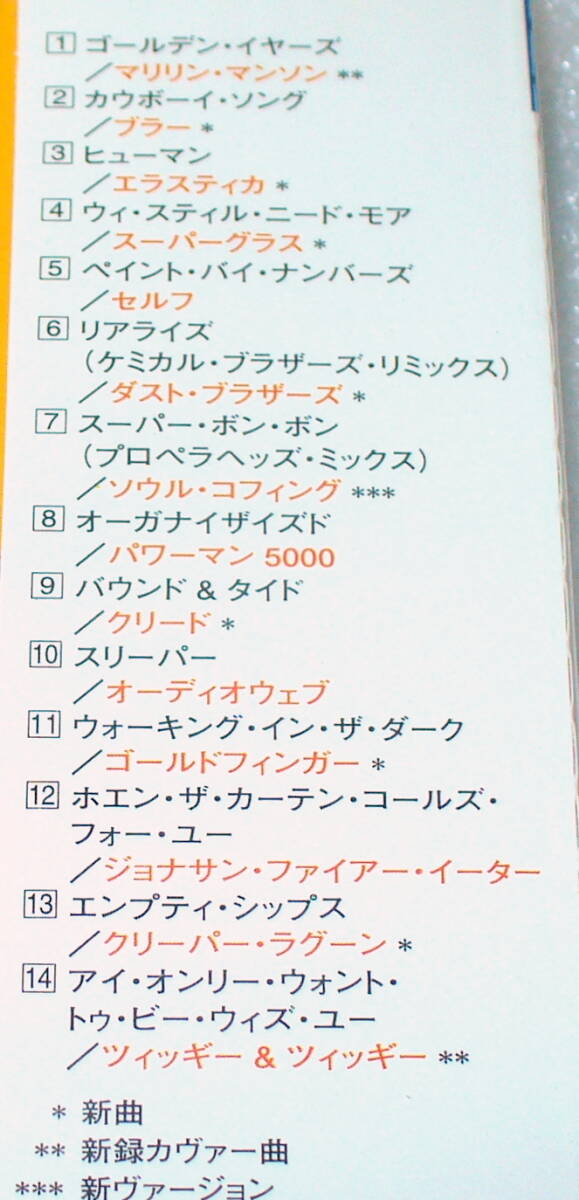 1 ゴールデン・イヤーズ
／マリリン・マンソン **
2 カウボーイ・ソング
／ブラー *
3 ヒューマン
／エラスティカ *
4 ウィ・スティル・ニード・モア
／スーパーグラス *
5 ペイント・バイ・ナンバーズ
／セルフ
6 リアライズ
（ケミカル・ブラザーズ・リミックス）
／ダスト・ブラザーズ *
7 スーパー・ボン・ボン
（プロペラヘッズ・ミックス）
／ソウル・コフィング ***
8 オーガナイザイズド
／パワーマン 5000
9 バウンド & タイド
／クリード *
10 スリーパー
／オーディオウェブ
11 ウォーキング・イン・ザ・ダーク
／ゴールドフィンガー *
12 ホエン・ザ・カーテン・コールズ・
フォー・ユー
／ジョナサン・ファイアー・イーター
13 エンプティ・シップス
／クリーパー・ラグーン *
14 アイ・オンリー・ウォント・
トゥ・ビー・ウィズ・ユー
／ツィッギー & ツィッギー **
* 新曲
** 新録カヴァー曲
*** 新ヴァージョン